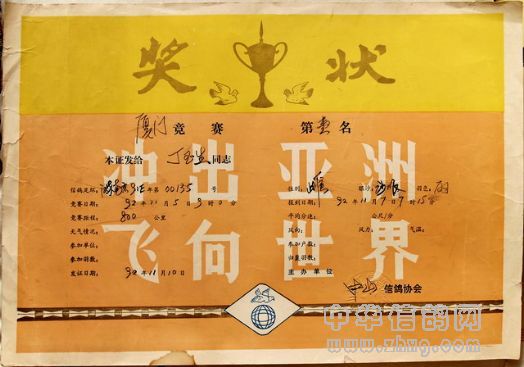 奖 状
厦门 竞 赛 第 壹 名
本证发给 丁 同志
冲出亚洲
信鸽足环: 年第 00135 号 性别: 雌 眼沙: 羽色: 雨
竞赛日期: 92 年 11 月 5 日 9 时 0 分 报到日期: 92 年 11 月 7 日 7 时 15
竞赛距程: 800 公里 平均分速: 公尺/分
天气情况: 风向: 风力: 气温:
飞向世界
参加单位: 参加户数:
参加羽数: 归巢羽数:
发证日期: 92 年 11 月 10 日 主办单位
信鸽协会
中华信鸽网
www.zhxg.com